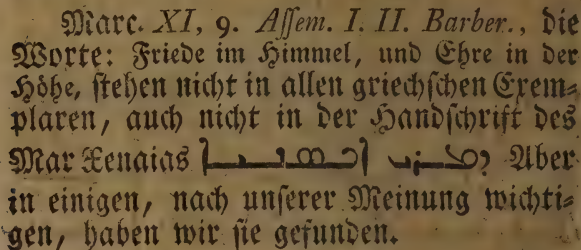 Marc. XI, 9. Assem. I. II. Barber., die
Worte: Friede im Himmel, und Ehre in der
Höhe, stehen nicht in allen griechschen Exem-
plaren, auch nicht in der Handschrift des
Mar Xenaias Aber
in einigen, nach unserer Meinung wichti-
gen, haben wir sie gefunden.